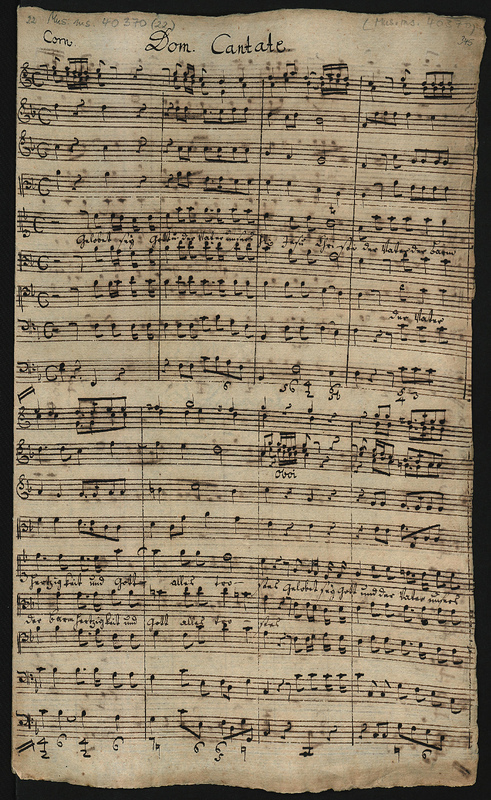 22 Mus. ms. 40370 (22)
(Mus. ms. 40370
Corn.
Dom. Cantate
Gelobet sey Gott u. der Vater unsers H. Jesu Christi der Vater der barm
der Vater
6 56 4 2 36 5 4 3
Oboi
hertzigkeit und Gott alles tro- stes Gelobet sey Gott und der Vater unsers
der barmhertzigkeit und Gott alles tro- stes
4 2 6 4 2 6 7 6 6 5 6